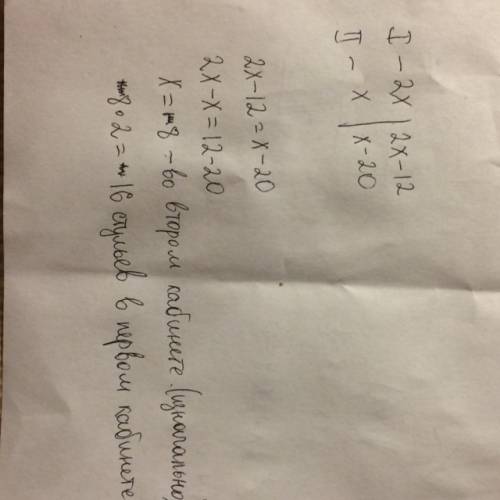 I - 2x | 2x-12
II - x | x-20
2x-12 = x-20
2x-x = 12-20
x = 8 - во втором кабинете. (изначально)
8·2 = 16 стульев в первом кабинете